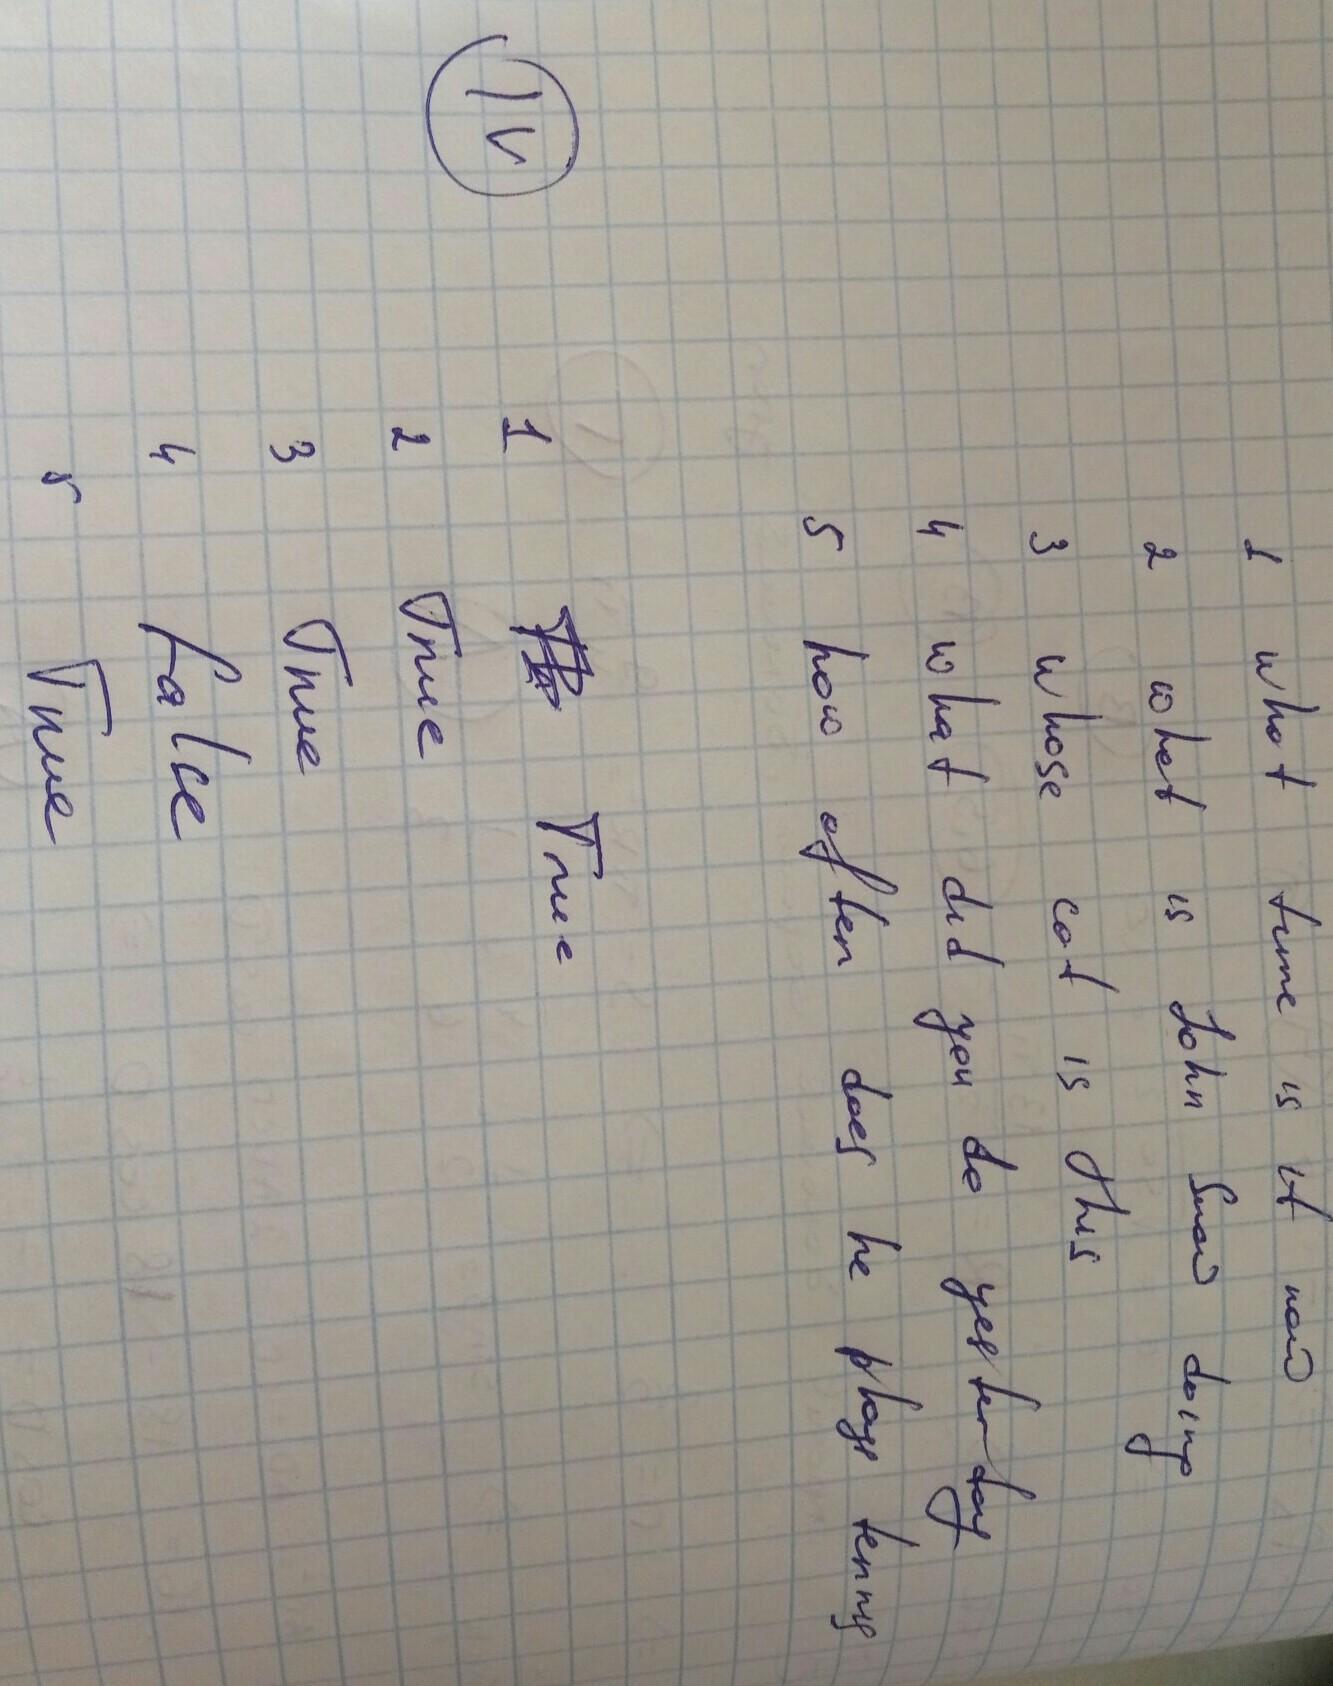 1 what time is it now
2 what is John Snow doing
3 whose cat is this
4 what did you do yesterday
5 how often does he plays tennys
IV
1 True
2 True
3 True
4 falce
5 True